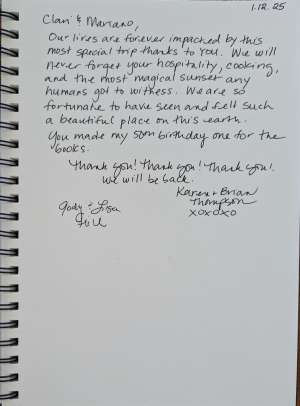 1.12.25
Clari & Mariano,
Our lives are forever impacted by this
most special trip thanks to you. We will
never forget your hospitality, cooking,
and the most magical sunset any
humans got to witness. We are so
fortunate to have seen and fell such
a beautiful place on this earth.
You made my 50th birthday one for the
books.
Thank you! Thank you! Thank you!
We will be back.
Karen + Brian
Thompson
xoxoxo
+ Lisa
Hill